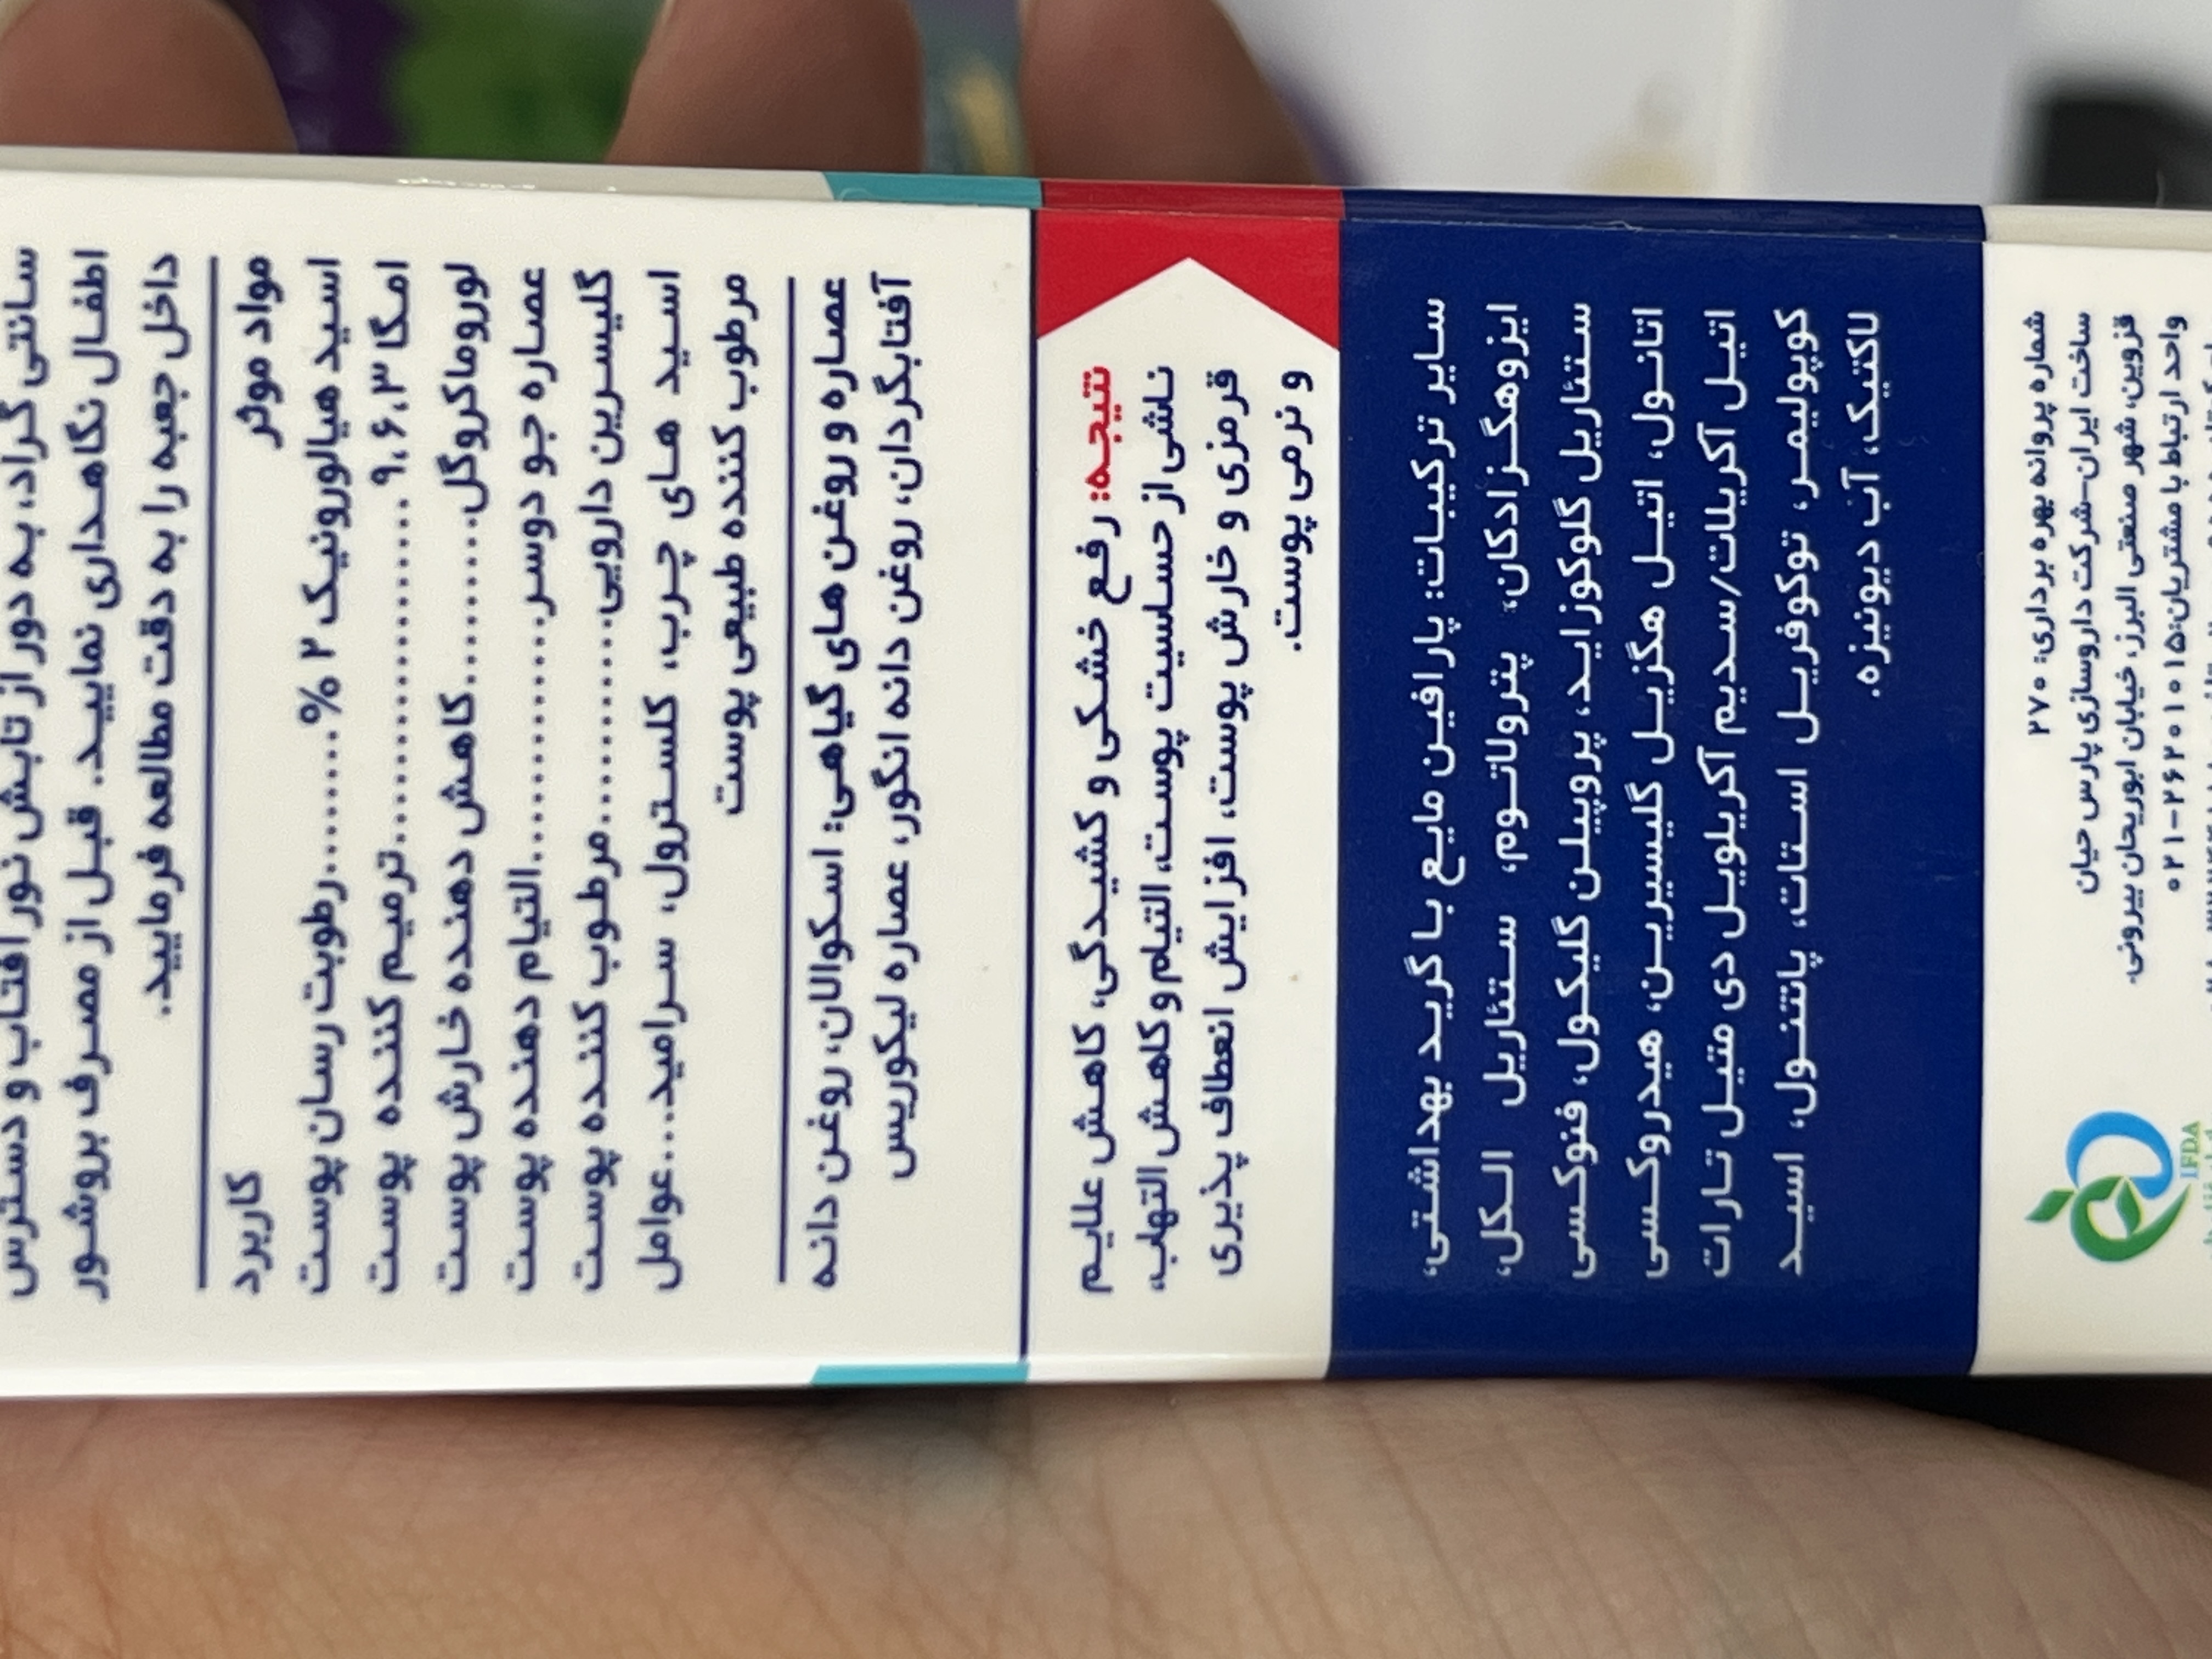 سانتی گراد، به دور از تابش نور آفتاب و دسترس
اطفال نگاهداری نمایید. قبل از مصرف بروشور
داخل جعبه را به دقت مطالعه فرمایید.
مواد موثر کاربرد
اسید هیالورونیک ۲ %........رطوبت رسان پوست
امگا ۹،۶،۳ ......................ترمیم کننده پوست
لوروماکروگل............کاهش دهنده خارش پوست
عصاره جو دوسر................التیام دهنده پوست
گلیسرین دارویی.............مرطوب کننده پوست
اسید های چرب، کلسترول، سرامید....عوامل
مرطوب کننده طبیعی پوست
عصاره و روغن های گیاهی: اسکوالان، روغن دانه
آفتابگردان، روغن دانه انگور، عصاره لیکوریس
نتیجه: رفع خشکی و کشیدگی، کاهش علایم
ناشی از حساسیت پوست، التیام و کاهش التهاب،
قرمزی و خارش پوست، افزایش انعطاف پذیری
و نرمی پوست.
سایر ترکیبات: پارافین مایع با گرید بهداشتی،
ایزوهگزادکان، پترولاتوم، ستئاریل الکل،
ستئاریل گلوکوزاید، پروپیلن گلیکول، فنوکسی
اتانول، اتیل هگزیل گلیسیرین، هیدروکسی
اتیل آکریلات/سدیم آکریلویل دی متیل تارات
کوپولیمر، توکوفریل استات، پانتنول، اسید
لاکتیک، آب دیونیزه.
شماره پروانه بهره برداری: ۲۷۰
ساخت ایران-شرکت داروسازی پارس حیان
قزوین، شهر صنعتی البرز، خیابان ابوریحان بیرونی.
واحد ارتباط با مشتریان:۰۲۱-۲۶۲۰۱۰۱۵
IFDA